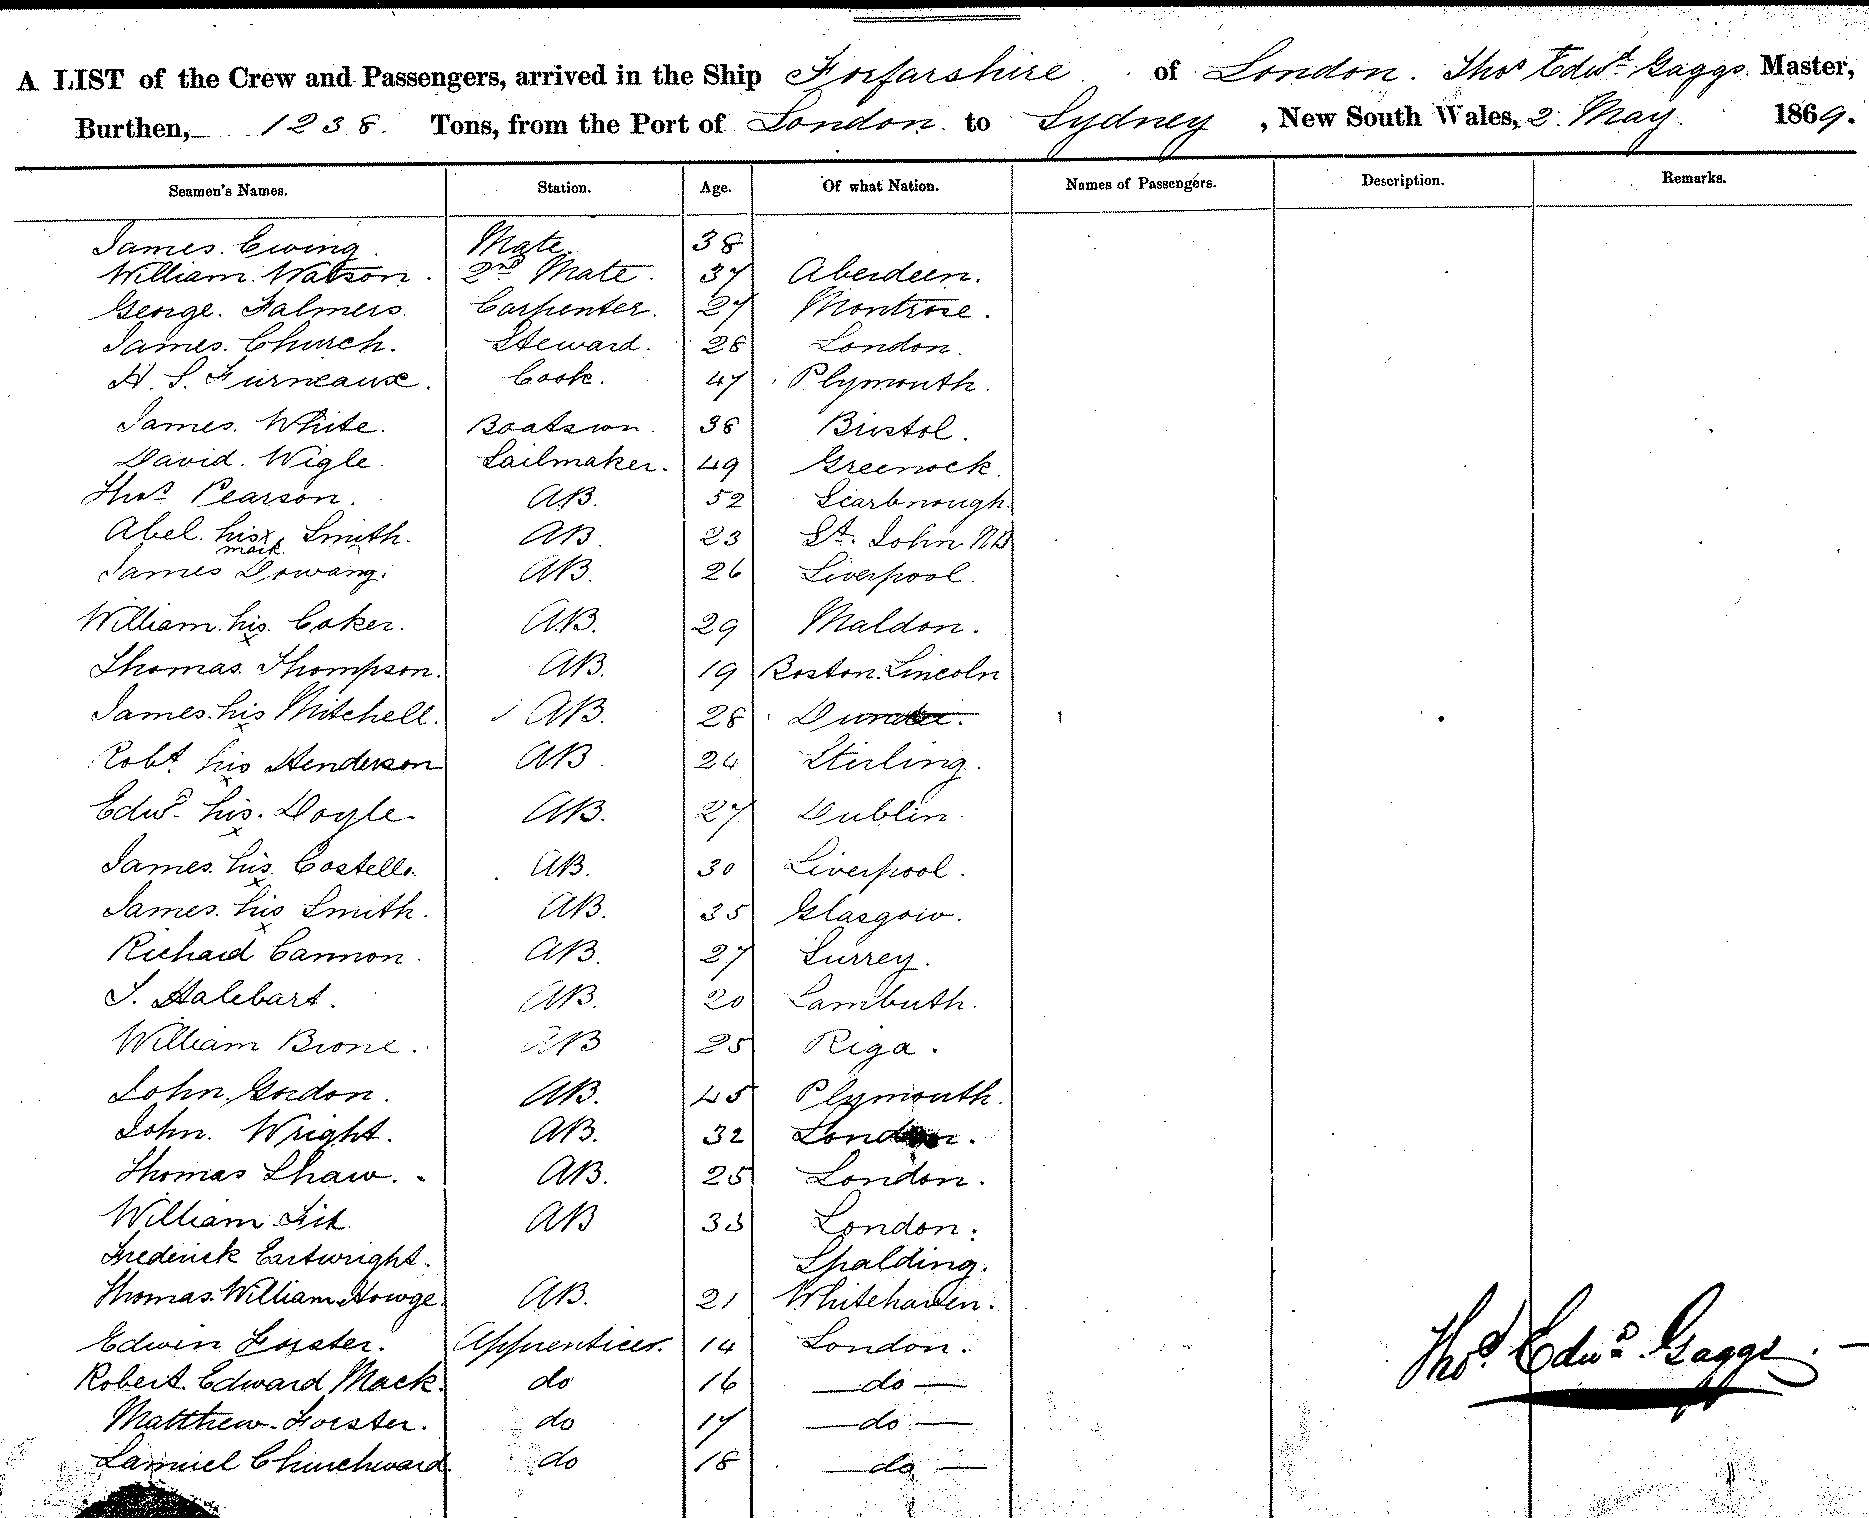 A LIST of the Crew and Passengers, arrived in the Ship Forfarshire of London. Thos Edwd Gaggs Master,
Burthen, 1238. Tons, from the Port of London to Sydney, New South Wales, 2 May 1869.
Seamen's Names. Station. Age. Of what Nation. Names of Passengers. Description. Remarks.
James. Ewing Mate. 38
William. Watson. 2nd Mate. 37 Aberdeen.
George. Falmers. Carpenter. 27 Montrose.
James. Church. Steward. 28 London.
H. S. Furneaux. Cook. 47 Plymouth.
James. White. Boatswn 38 Bristol.
David. Wigle. Sailmaker. 49 Greenock.
Thos Pearson. AB. 52 Scarbnough.
Abel. his x mark Smith. AB. 23 St. John NB
James Dowang. AB. 26 Liverpool.
William. his x Coker. AB. 29 Maldon.
Thomas. Thompson. AB. 19 Boston. Lincoln
James. his x Mitchell. AB. 28 Dundee.
Robt. his x Henderson AB 24 Stirling.
Edwd. his x Doyle. AB. 27 Dublin.
James. his x Costello. AB. 30 Liverpool.
James. his x Smith. AB. 35 Glasgow.
Richard Cannon. AB. 27 Surrey.
S. Halebart. AB. 20 Lambuth.
William Brone. AB 25 Riga.
John Gordon. AB. 45 Plymouth.
John. Wright. AB. 32 London.
Thomas Shaw. AB. 25 London.
William AB 33 London.
Frederick Cartwright. Spalding.
Thomas. William Howge. AB. 21 Whitehaven.
Edwin Forster. Apprentices. 14 London.
Robert. Edward Mack. do 16 —do—
Thos Edwd Gaggs.
Matthew Forster. do 17 —do—
Samuel Churchward. do 18 —do—